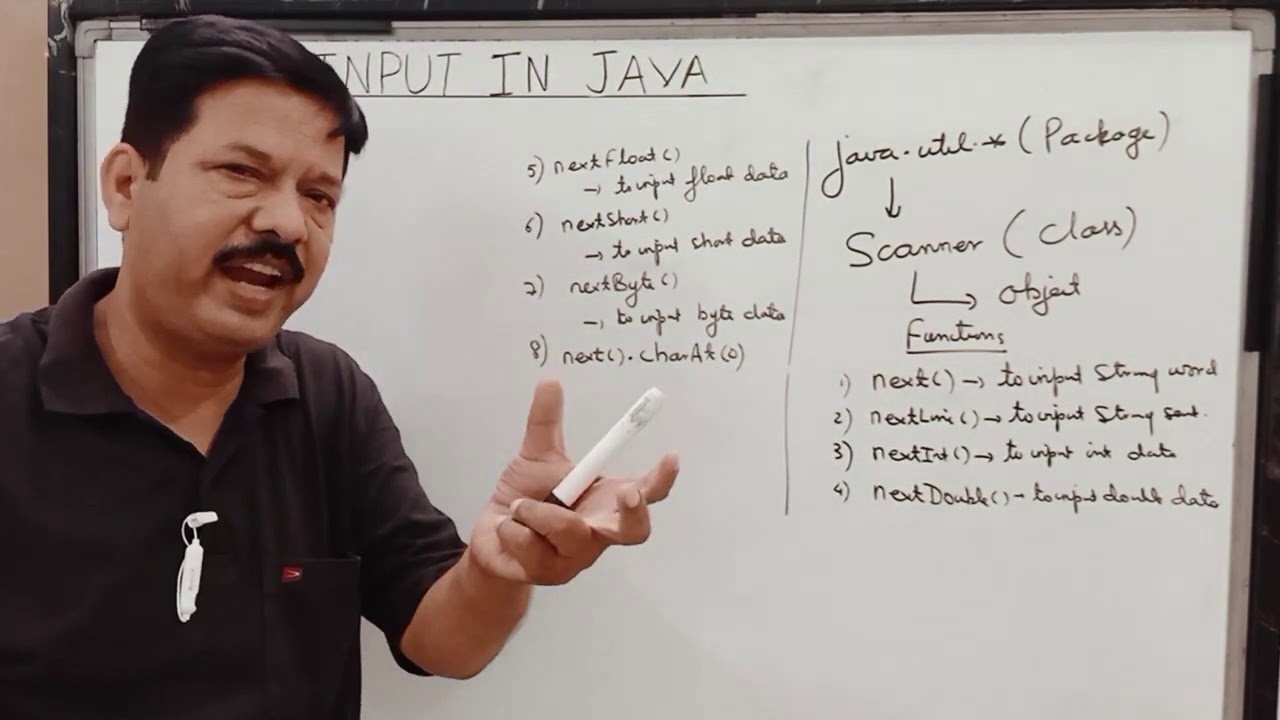 INPUT IN JAVA
5) nextFloat()
→ to input float data
6) nextShort()
→ to input short data
7) nextByte()
→ to input byte data
8) next().charAt(0)
java.util.* (Package)
↓
Scanner (Class)
→ object
Functions
1) next() → to input String word
2) nextLine() → to input String sent.
3) nextInt() → to input int data
4) nextDouble() → to input double data